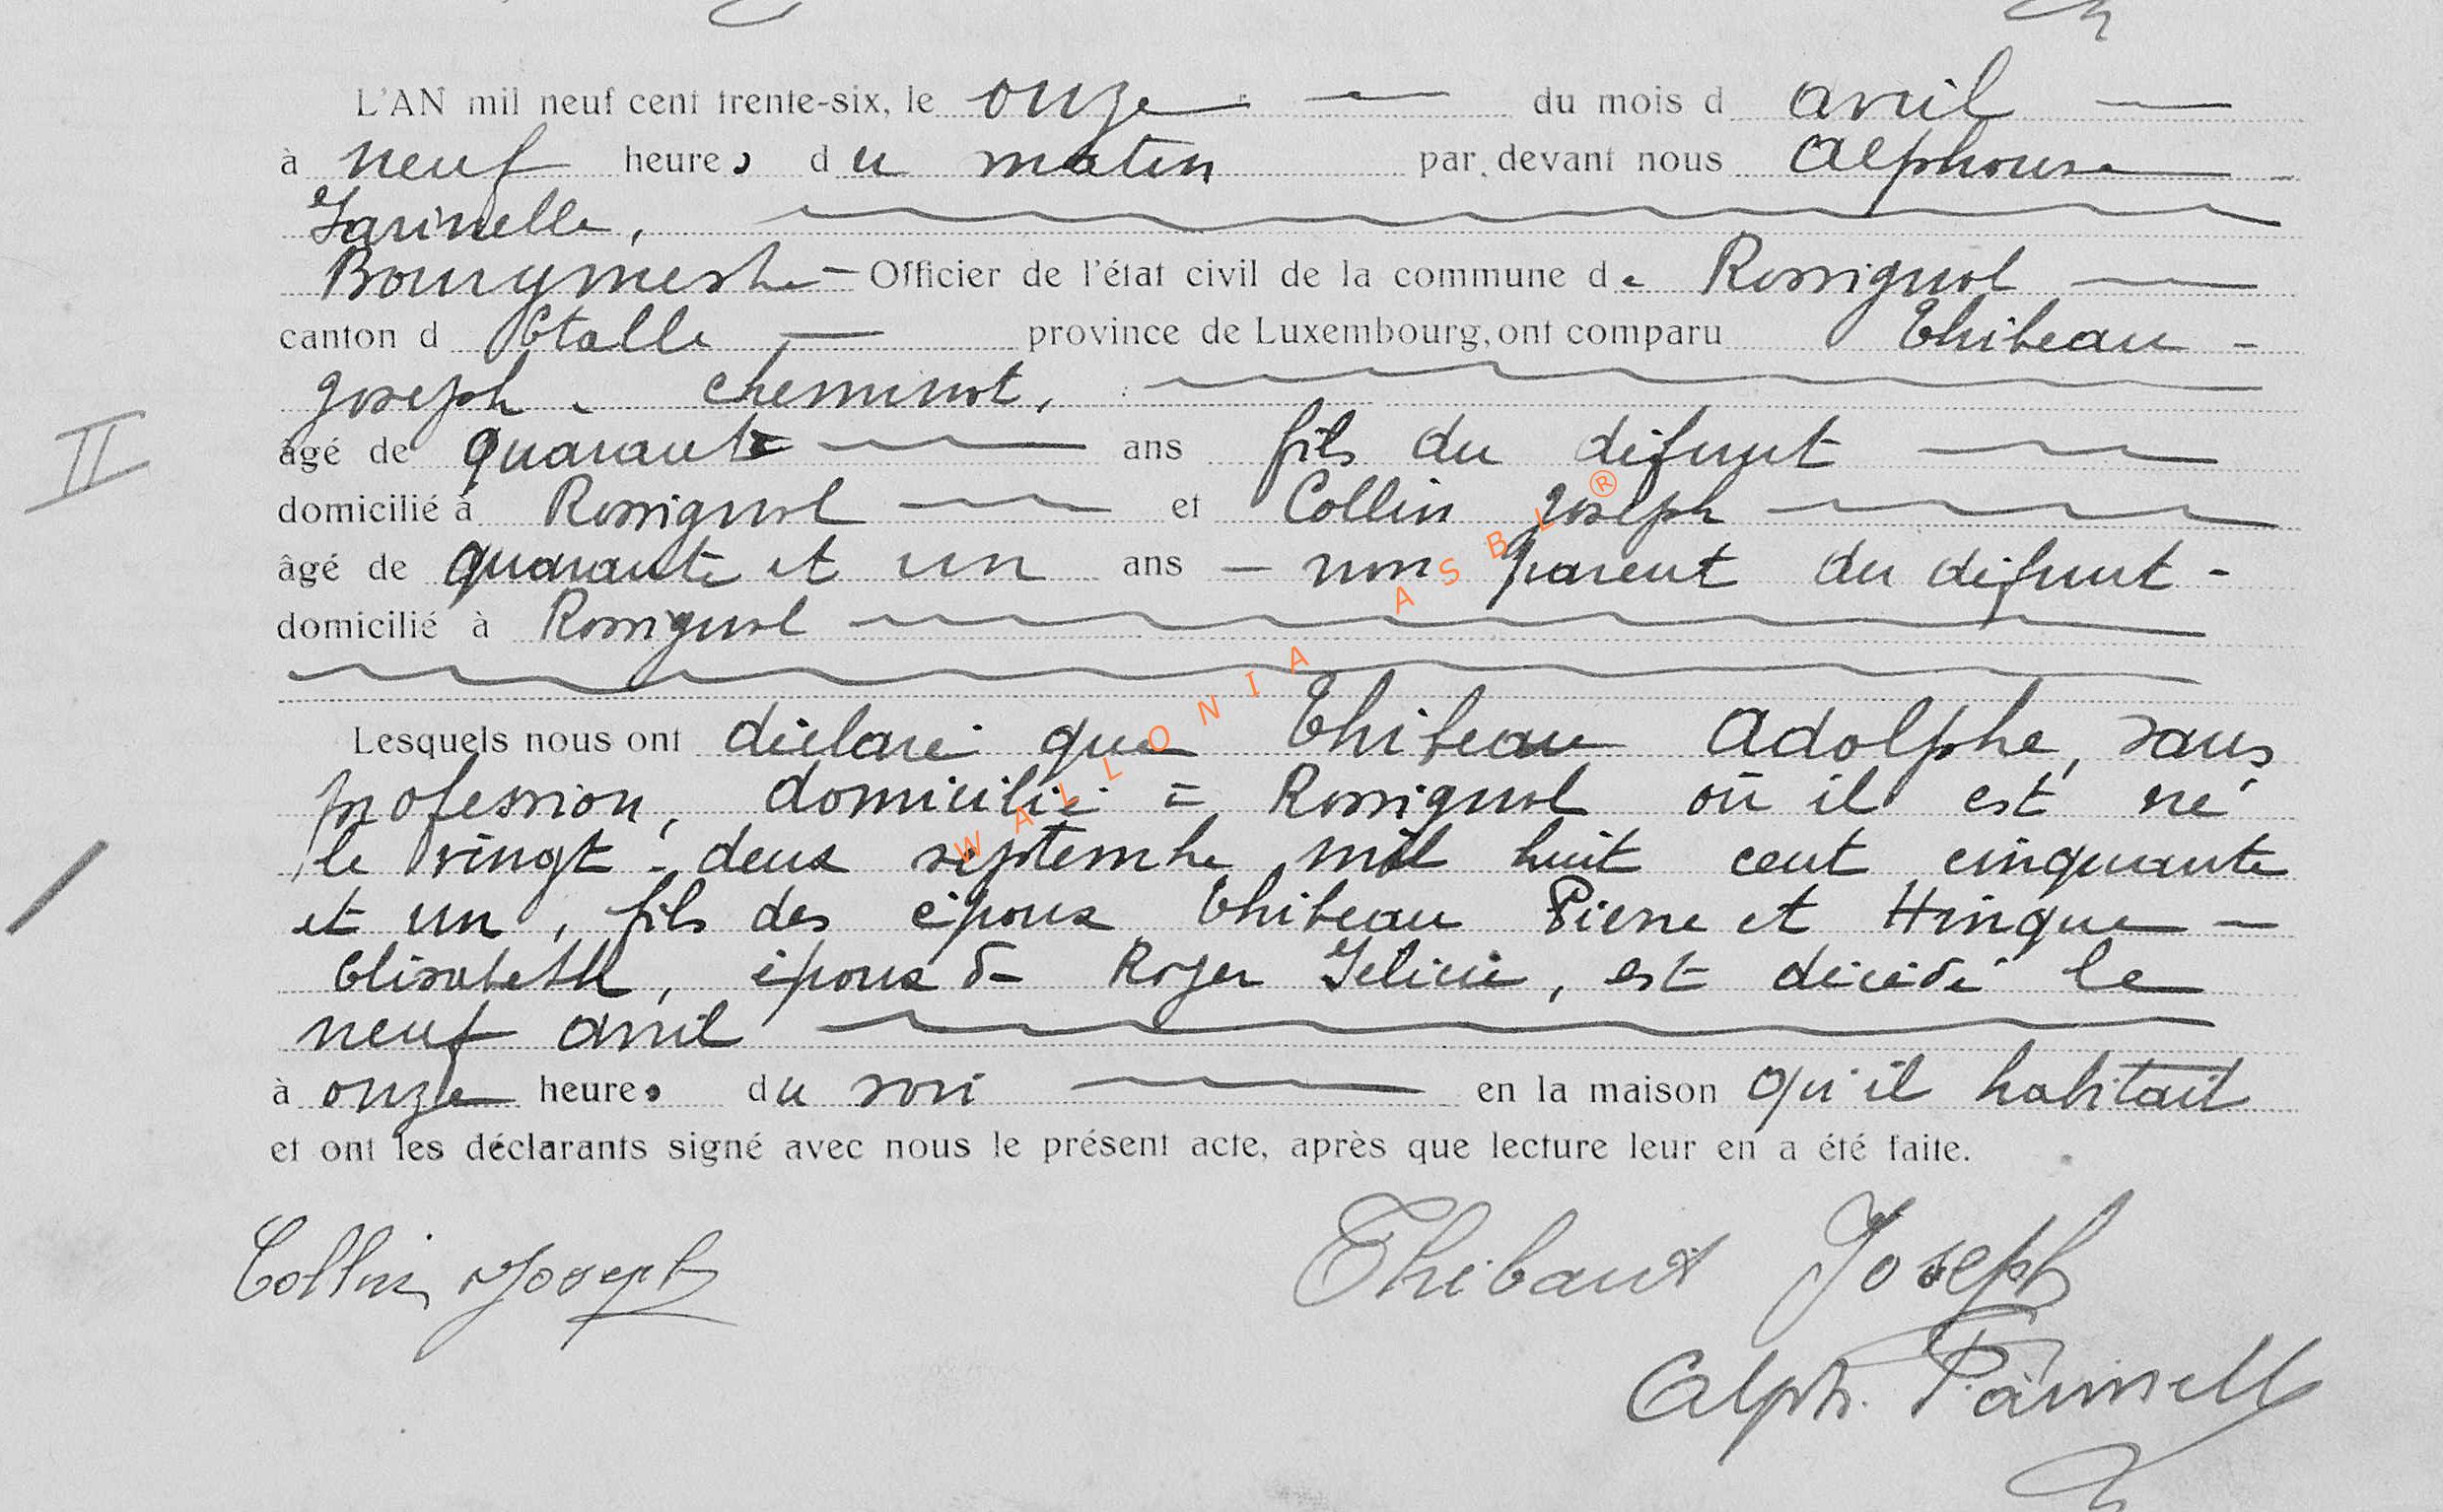 L'AN mil neuf cent trente-six, le onze du mois d avril
à neuf heures du matin par devant nous Alphonse
Farinelle,
Bourgmestre Officier de l'état civil de la commune de Rossignol
canton d Etalle province de Luxembourg, ont comparu Thibeau
Joseph, cheminot,
âgé de quarante ans fils du défunt
domicilié à Rossignol et Collin Joseph
âgé de quarante et un ans - non parent du défunt -
domicilié à Rossignol
Lesquels nous ont déclaré que Thibeau Adolphe, sans
profession, domicilié à Rossignol où il est né
le vingt-deux septembre mil huit cent cinquante
et un, fils des époux Thibeau Pierre et Hinque
Elisabeth, époux de Roger Félicie, est décédé le
neuf avril
à onze heures du soir en la maison qu'il habitait
et ont les déclarants signé avec nous le présent acte, après que lecture leur en a été faite.
Collin Joseph Thibaut Joseph
Alph. Farinelle
II
WALLONIA ASBL ®